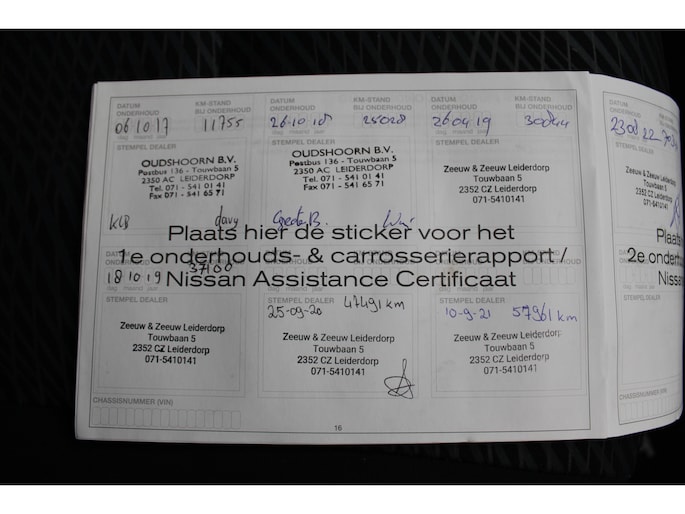 DATUM ONDERHOUD KM-STAND BIJ ONDERHOUD
06 10 17 11755
dag maand jaar
STEMPEL DEALER
OUDSHOORN B.V.
Postbus 136 - Touwbaan 5
2350 AC LEIDERDORP
Tel. 071 - 541 01 41
Fax 071 - 541 65 71
KLB davy
DATUM ONDERHOUD KM-STAND BIJ ONDERHOUD
26-10-18 25028
dag maand jaar
STEMPEL DEALER
OUDSHOORN B.V.
Postbus 136 - Touwbaan 5
2350 AC LEIDERDORP
Tel. 071 - 541 01 41
Fax 071 - 541 65 71
DATUM ONDERHOUD KM-STAND BIJ ONDERHOUD
26 04 19
dag maand jaar
STEMPEL DEALER
Zeeuw & Zeeuw Leiderdorp
Touwbaan 5
2352 CZ Leiderdorp
071-5410141
Plaats hier de sticker voor het
1e onderhouds- & carrosserierapport /
Nissan Assistance Certificaat
18 10 19 37100
dag maand jaar
STEMPEL DEALER
Zeeuw & Zeeuw Leiderdorp
Touwbaan 5
2352 CZ Leiderdorp
071-5410141
STEMPEL DEALER
25-09-20 47491 km
Zeeuw & Zeeuw Leiderdorp
Touwbaan 5
2352 CZ Leiderdorp
071-5410141
STEMPEL DEALER
10-9-21 57961 km
Zeeuw & Zeeuw Leiderdorp
Touwbaan 5
2352 CZ Leiderdorp
071-5410141
CHASSISNUMMER (VIN)
16
DATUM ONDERHOUD
23 08 22
STEMPEL DEALER
Zeeuw & Zeeuw Leiderdorp
Touwbaan 5
2352 CZ Leiderdorp
071-5410141
2e
STEMPEL DEALER
CHASSISNUMMER (VIN)